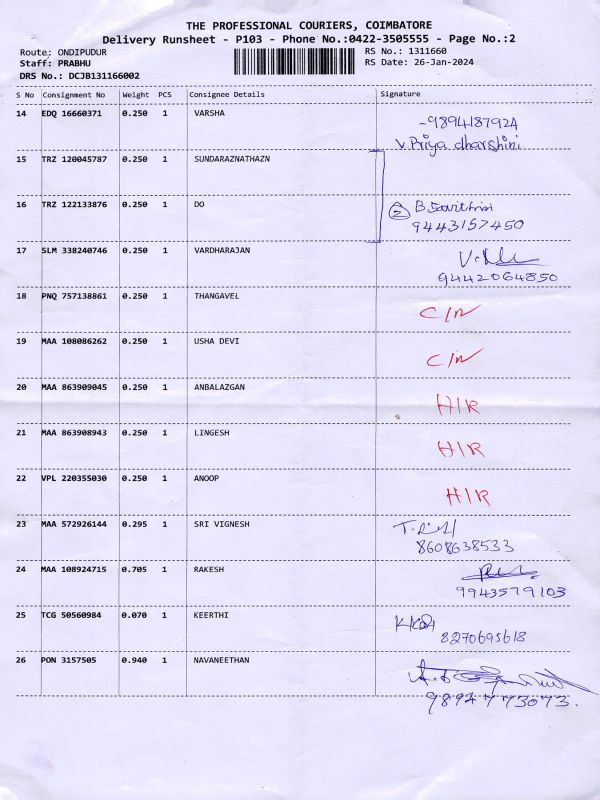 THE PROFESSIONAL COURIERS, COIMBATORE
Delivery Runsheet - P103 - Phone No.:0422-3505555 - Page No.:2
Route: ONDIPUDUR
Staff: PRABHU
DRS No.: DCJB131166002
RS No.: 1311660
RS Date: 26-Jan-2024
S No Consignment No Weight PCS Consignee Details Signature
14 EDQ 16660371 0.250 1 VARSHA
-9894187924
V.Priya dharshini
15 TRZ 120045787 0.250 1 SUNDARAZNATHAZN
16 TRZ 122133876 0.250 1 DO
② B
9443157450
17 SLM 338240746 0.250 1 VARDHARAJAN
9442064850
18 PNQ 757138861 0.250 1 THANGAVEL
C/N
19 MAA 108086262 0.250 1 USHA DEVI
C/N
20 MAA 863909045 0.250 1 ANBALAZGAN
H/R
21 MAA 863908943 0.250 1 LINGESH
H/R
22 VPL 220355030 0.250 1 ANOOP
H/R
23 MAA 572926144 0.295 1 SRI VIGNESH
8608638533
24 MAA 108924715 0.705 1 RAKESH
9943579103
25 TCG 50560984 0.070 1 KEERTHI
8270695618
26 PON 3157505 0.940 1 NAVANEETHAN
9894773073.